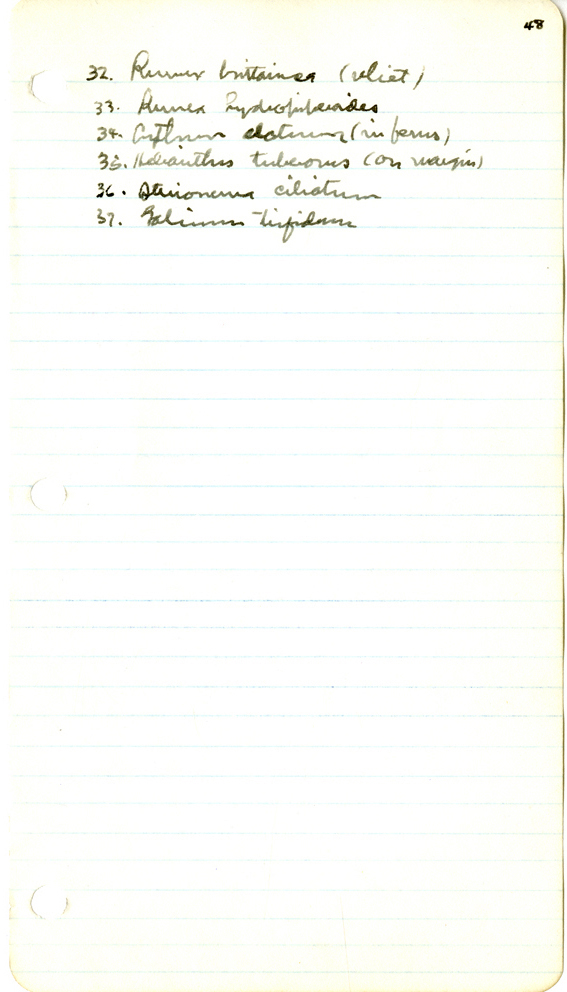 48
32. Rumex brittanica (relict)
33. Rumex hydropiperoides
34. (in ferns)
35. Helianthus tuberosus (on margin)
36. Steironema ciliatum
37. Galium trifidum